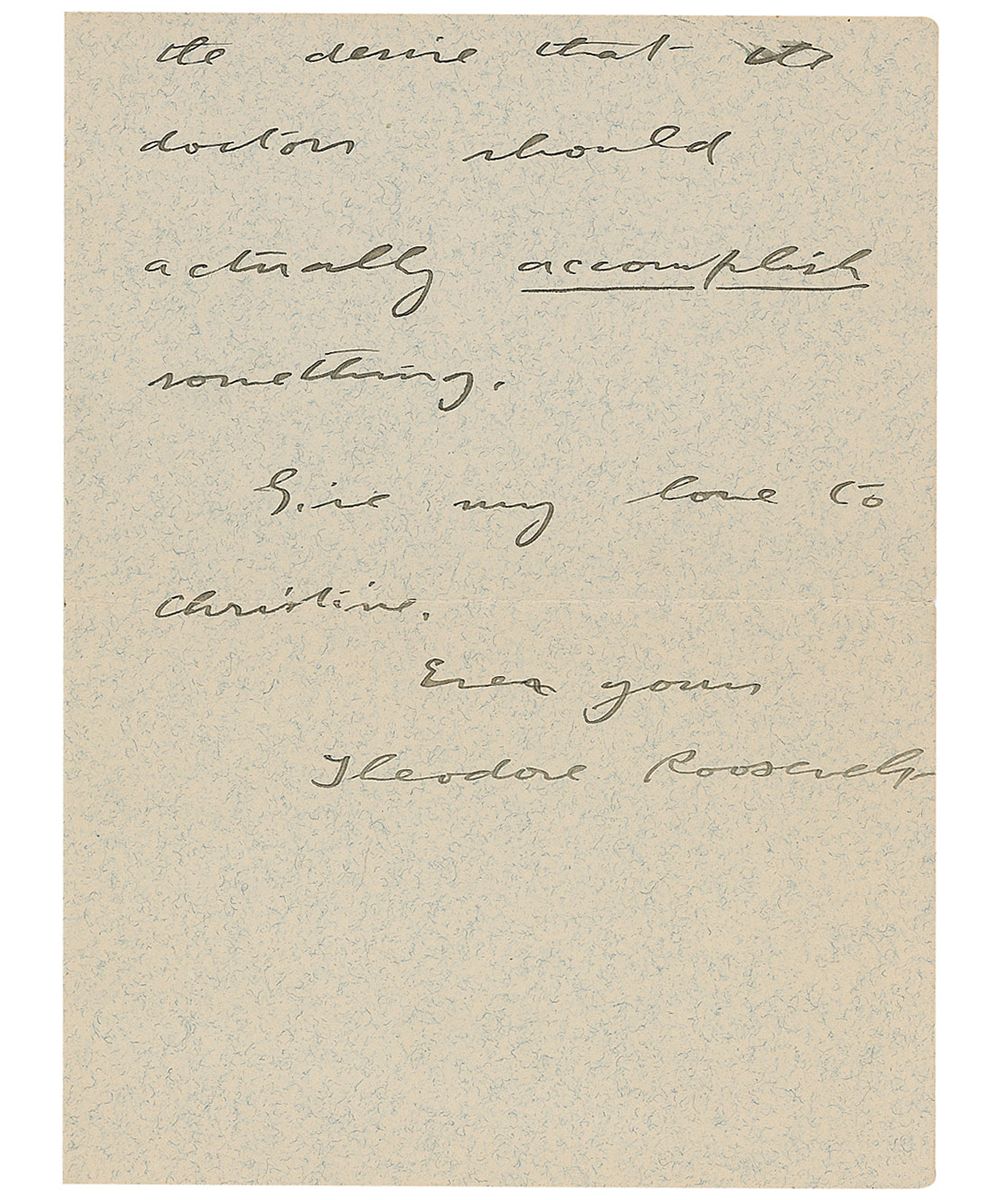 the desire that the
doctors should
actually accomplish
something.
Give my love to
Christine.
Ever yours
Theodore Roosevelt